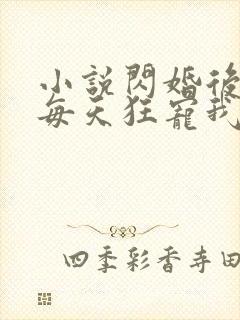 小說閃婚後
每天狂寵我
四季彩香寺田